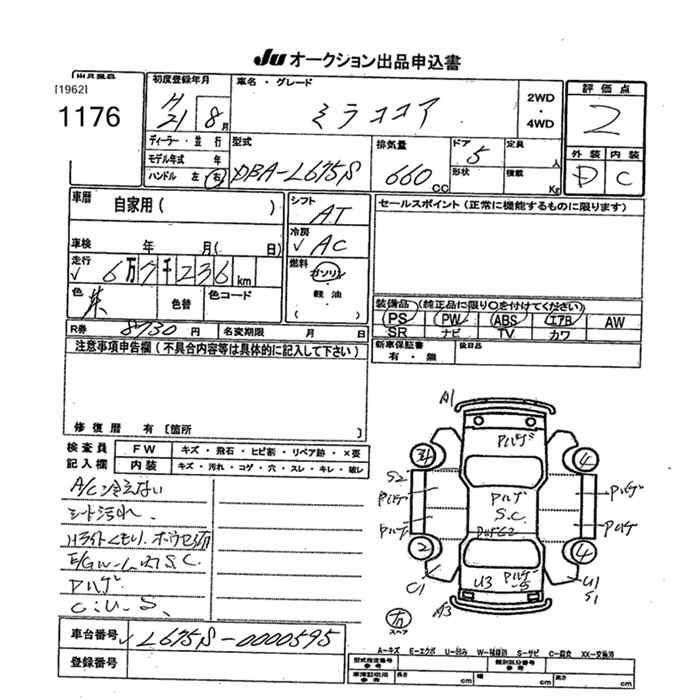 Ju オークション出品申込書
出品番号
[1962]
1176
初度登録年月
H 21 8月
車名・グレード
ミラココア
2WD
・
4WD
評価点
2
外装 内装
D C
ディーラー・並行
モデル年式 年
ハンドル 左 右
型式
DBA-L675S
排気量
660 CC
ドア 5
形状
定員 人
積載 Kg
車歴
自家用( )
車検 年 月( 日)
走行
6万7千236 km
色
茶
色替
色コード
シフト
AT
冷房
AC
燃料
ガソリン
・
軽油
( )
セールスポイント(正常に機能するものに限ります)
装備品(純正品に限り○を付けてください)
PS PW ABS エアB AW
SR ナビ TV カワ
R券 8730 円 名変期限 月 日
新車保証書
有・無
後日品
注意事項申告欄(不具合内容等は具体的に記入して下さい)
修復歴 有[箇所 ]
検査員
記入欄
FW キズ・飛石・ヒビ割・リペア跡・×要
内装 キズ・汚れ・コゲ・穴・スレ・キレ・破レ
A/C冷えない
シート汚れ.
Hライトくもり.
S.C.
Pハゲ
C.U.S.
A1
Pハゲ
34 4
S2
Pハゲ Pハゲ Pハゲ
S.C.
Pハゲ Pハゲ
2 4
C1 U3 Pハゲ U1
S S1
A3
スペア
A-キズ E-エクボ U-凹み W-補修跡 S-サビ C-腐食 XX-交換済
車台番号 L675S-0000595
登録番号
型式指定番号
参考
類別区分番号
参考
長さ cm 幅 cm 高さ cm